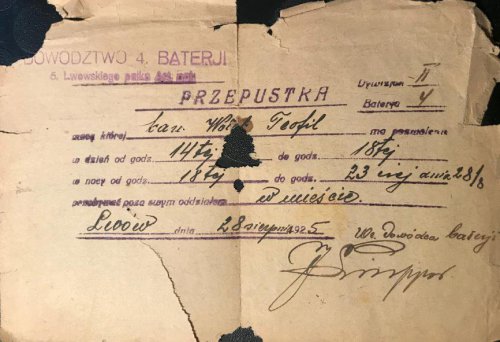 DOWODZTWO 4. BATERJI
5. Lwowskiego pułku Art. pol.
PRZEPUSTKA
Dywizjon II
Baterja 4
mocą której kan. Teofil ma pozwolenie
w dzień od godz. 14tej do godz. 18tej
w nocy od godz. 18tej do godz. 23 ciej dnia 28/8
przebywać poza swym oddziałem w mieście.
Lwów dnia 28 sierpnia 1925
Wz. Dowódca baterji